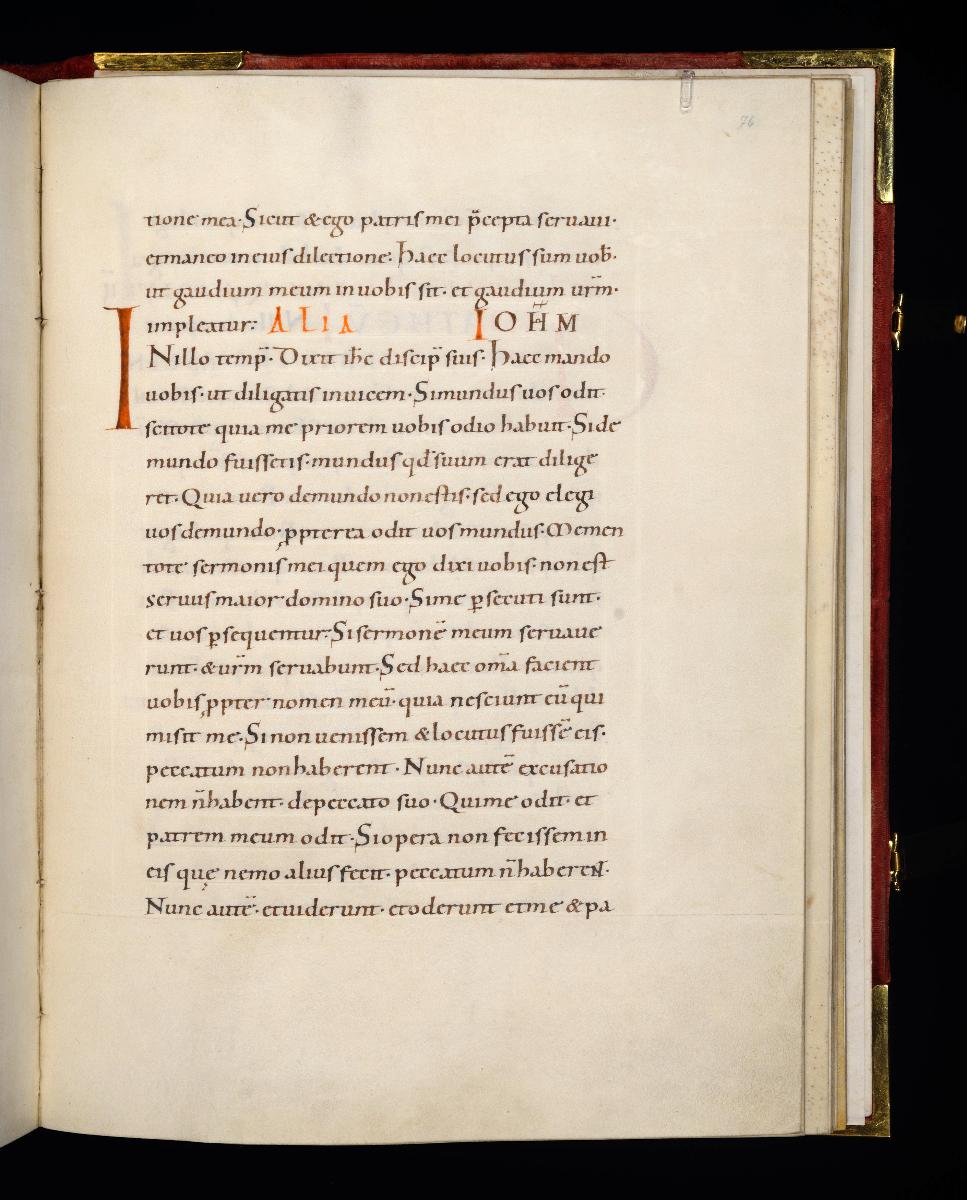 76
tione mea· Sicut & ego patris mei p̄cepta seruaui·
et maneo in eius dilectione· Haec locutus sum uob̄·
ut gaudium meum in uobis sit· et gaudium ur̄m·
impleatur· ALIA IOH̄M
INillo temp̄· Dixit ih̄c discip̄ suis· Haec mando
uobis· ut diligatis inuicem· Si mundus uos odit·
scitote quia me priorem uobis odio habuit· Si de
mundo fuissetis· mundus qd̄ suum erat dilige
ret· Quia uero de mundo non estis· sed ego elegi
uos de mundo· ꝓpterea odit uos mundus· Memen
tote sermonis mei quem ego dixi uobis· non est
seruus maior domino suo· Si me ꝑsecuti sunt·
et uos ꝑsequentur· Si sermonē meum seruaue
runt· & ur̄m seruabunt· Sed haec om̄a facient
uobis ꝓpter nomen meū· quia nesciunt eū qui
misit me· Si non uenissem & locutus fuissē eis·
peccatum non haberent· Nunc autē excusatio
nem n̄ habent· de peccato suo· Qui me odit· et
patrem meum odit· Si opera non fecissem in
eis quę nemo alius fecit· peccatum n̄ haberent·
Nunc autē· et uiderunt· et oderunt et me & pa